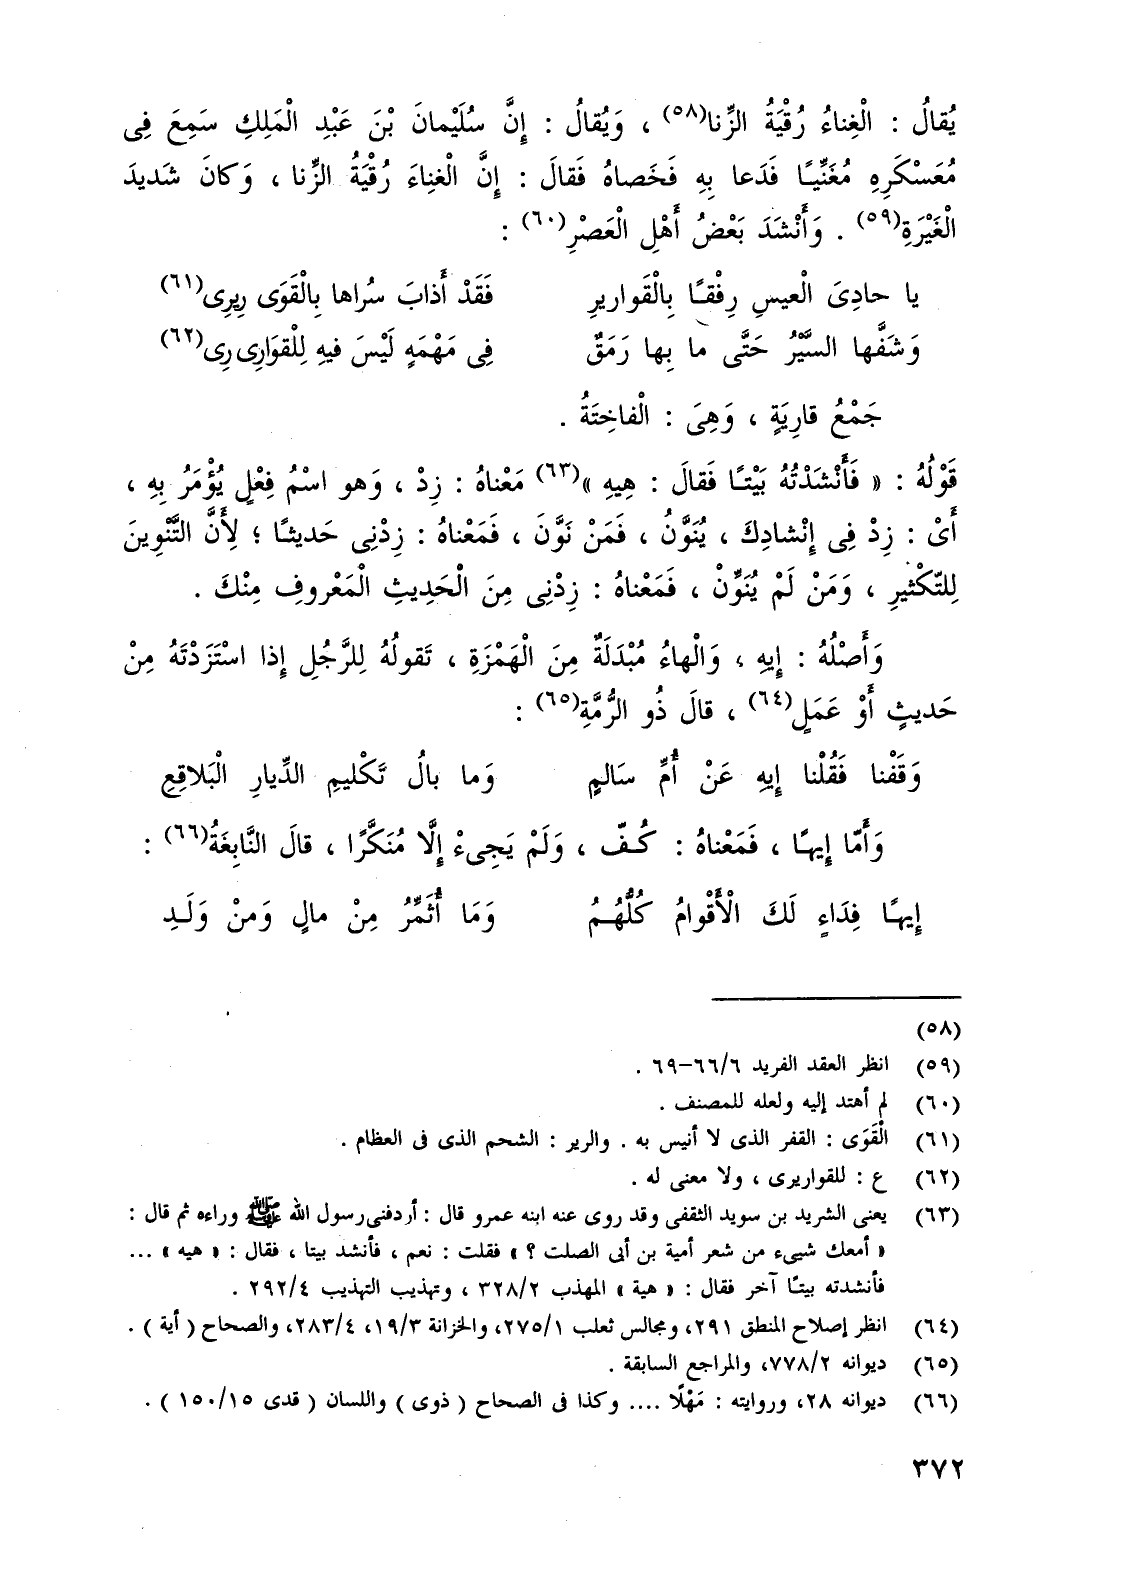 يُقالُ : الْغِناءُ رُقْيَةُ الزِّنا(٥٨) ، وَيُقالُ : إِنَّ سُلَيْمانَ بْنَ عَبْدِ الْمَلِكِ سَمِعَ فِى
مُعَسْكَرِهِ مُغَنِّيًا فَدَعا بِهِ فَخَصاهُ فَقالَ : إِنَّ الْغِناءَ رُقْيَةُ الزِّنا ، وَكانَ شَديدَ
الْغَيْرَةِ(٥٩) . وَأَنْشَدَ بَعْضُ أَهْلِ الْعَصْرِ(٦٠) :
يا حادِىَ الْعيسِ رِفْقًا بِالْقَواريرِ فَقَدْ أَذابَ سُراها بِالْقَوَى رِيرِى(٦١)
وَشَفَّها السَّيْرُ حَتَّى ما بِها رَمَقٌ فِى مَهْمَهٍ لَيْسَ فيهِ لِلْقوَارِى رِى(٦٢)
جَمْعُ قارِيَةٍ ، وَهِىَ : الْفاخِتَةُ .
قَوْلُهُ : « فَأَنْشَدْتُهُ بَيْتًا فَقالَ : هِيهِ »(٦٣) مَعْناهُ : زِدْ ، وَهو اسْمُ فِعْلٍ يُؤْمَرُ بِهِ ،
أَىْ : زِدْ فِى إِنْشادِكَ ، يُنَوَّنُ ، فَمَنْ نَوَّنَ ، فَمَعْناهُ : زِدْنِى حَديثًا ؛ لِأَنَّ التَّنْوِينَ
لِلتّكْثيرِ ، وَمَنْ لَمْ يُنَوِّنْ ، فَمَعْناهُ : زِدْنِى مِنَ الْحَدِيثِ الْمَعْروفِ مِنْكَ .
وَأَصْلُهُ : إِيهِ ، وَالْهاءُ مُبْدَلَةٌ مِنَ الْهَمْزَةِ ، تَقولُهُ لِلرَّجُلِ إِذا اسْتَزَدْتَهُ مِنْ
حَديثٍ أَوْ عَمَلٍ(٦٤) ، قالَ ذُو الرُّمَّةِ(٦٥) :
وَقَفْنا فَقُلْنا إِيهِ عَنْ أُمِّ سَالمٍ وَما بالُ تَكْليمِ الدِّيارِ الْبَلاقِعِ
وَأَمّا إِيهًا ، فَمَعْناهُ : كُفّ ، وَلَمْ يَجِىءْ إِلَّا مُنَكَّرًا ، قالَ النَّابِغَةُ(٦٦) :
إِيهًا فِدَاءٍ لَكَ الْأَقْوامُ كُلُّهُمُ وَمَا أُثَمِّرُ مِنْ مالٍ وَمنْ وَلَدِ
(٥٨)
(٥٩) انظر العقد الفريد ٦/ ٦٦–٦٩ .
(٦٠) لم أهتد إليه ولعله للمصنف .
(٦١) الْقَوَى : القفر الذى لا أنيس به . والرير : الشحم الذى فى العظام .
(٦٢) ع : للقواريرى ، ولا معنى له .
(٦٣) يعنى الشريد بن سويد الثقفى وقد روى عنه ابنه عمرو قال : أردفنى رسول الله ﷺ وراءه ثم قال :
« أمعك شيىء من شعر أمية بن أبى الصلت ؟ » فقلت : نعم ، فأنشد بيتا ، فقال : « هيه » ...
فأنشدته بيتًا آخر فقال : « هية » المهذب ٢/ ٣٢٨ ، وتهذيب التهذيب ٤/ ٢٩٢ .
(٦٤) انظر إصلاح المنطق ٢٩١، ومجالس ثعلب ١/ ٢٧٥، والخزانة ٣/ ١٩، ٤/ ٢٨٣، والصحاح ( أية ) .
(٦٥) ديوانه ٢/ ٧٧٨، والمراجع السابقة .
(٦٦) ديوانه ٢٨، وروايته : مَهْلًا .... وكذا فى الصحاح ( ذوى ) واللسان ( قدى ١٥/ ١٥٠ ) .
٣٧٢